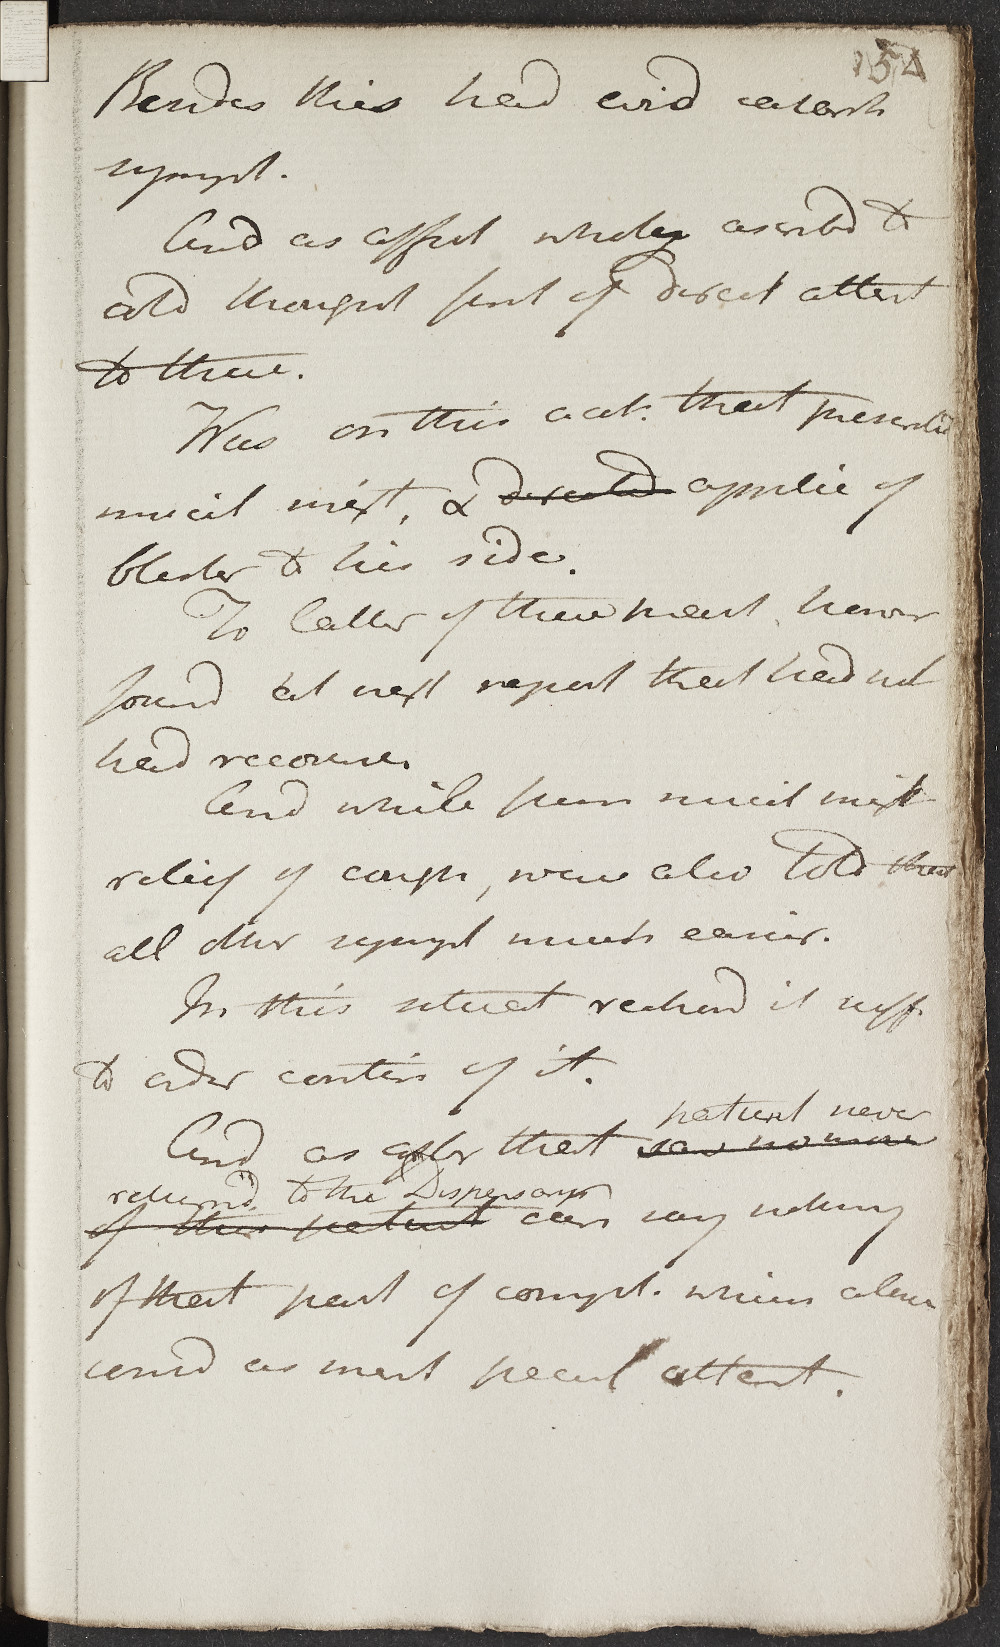 154
Besides this had evid catarrh
sympt.
And as affect wholy ascribd to
cold thought first of direct attent
to these.
Was on this acct. that prescribd
mucil mixt, & directed applic of
blister to his side.
To latter of these meas. howevr
found at next report that had not
had recourse.
And while from mucil mixt
relief of cough, were also told that
all other sympt much easier.
In this situat reckond it suff.
to order contin of it.
patient never
And as after that saw no more
returnd to the Dispensary
of this patient can say nothing
of that part of compt. which alone
consid as merit pecul attent.